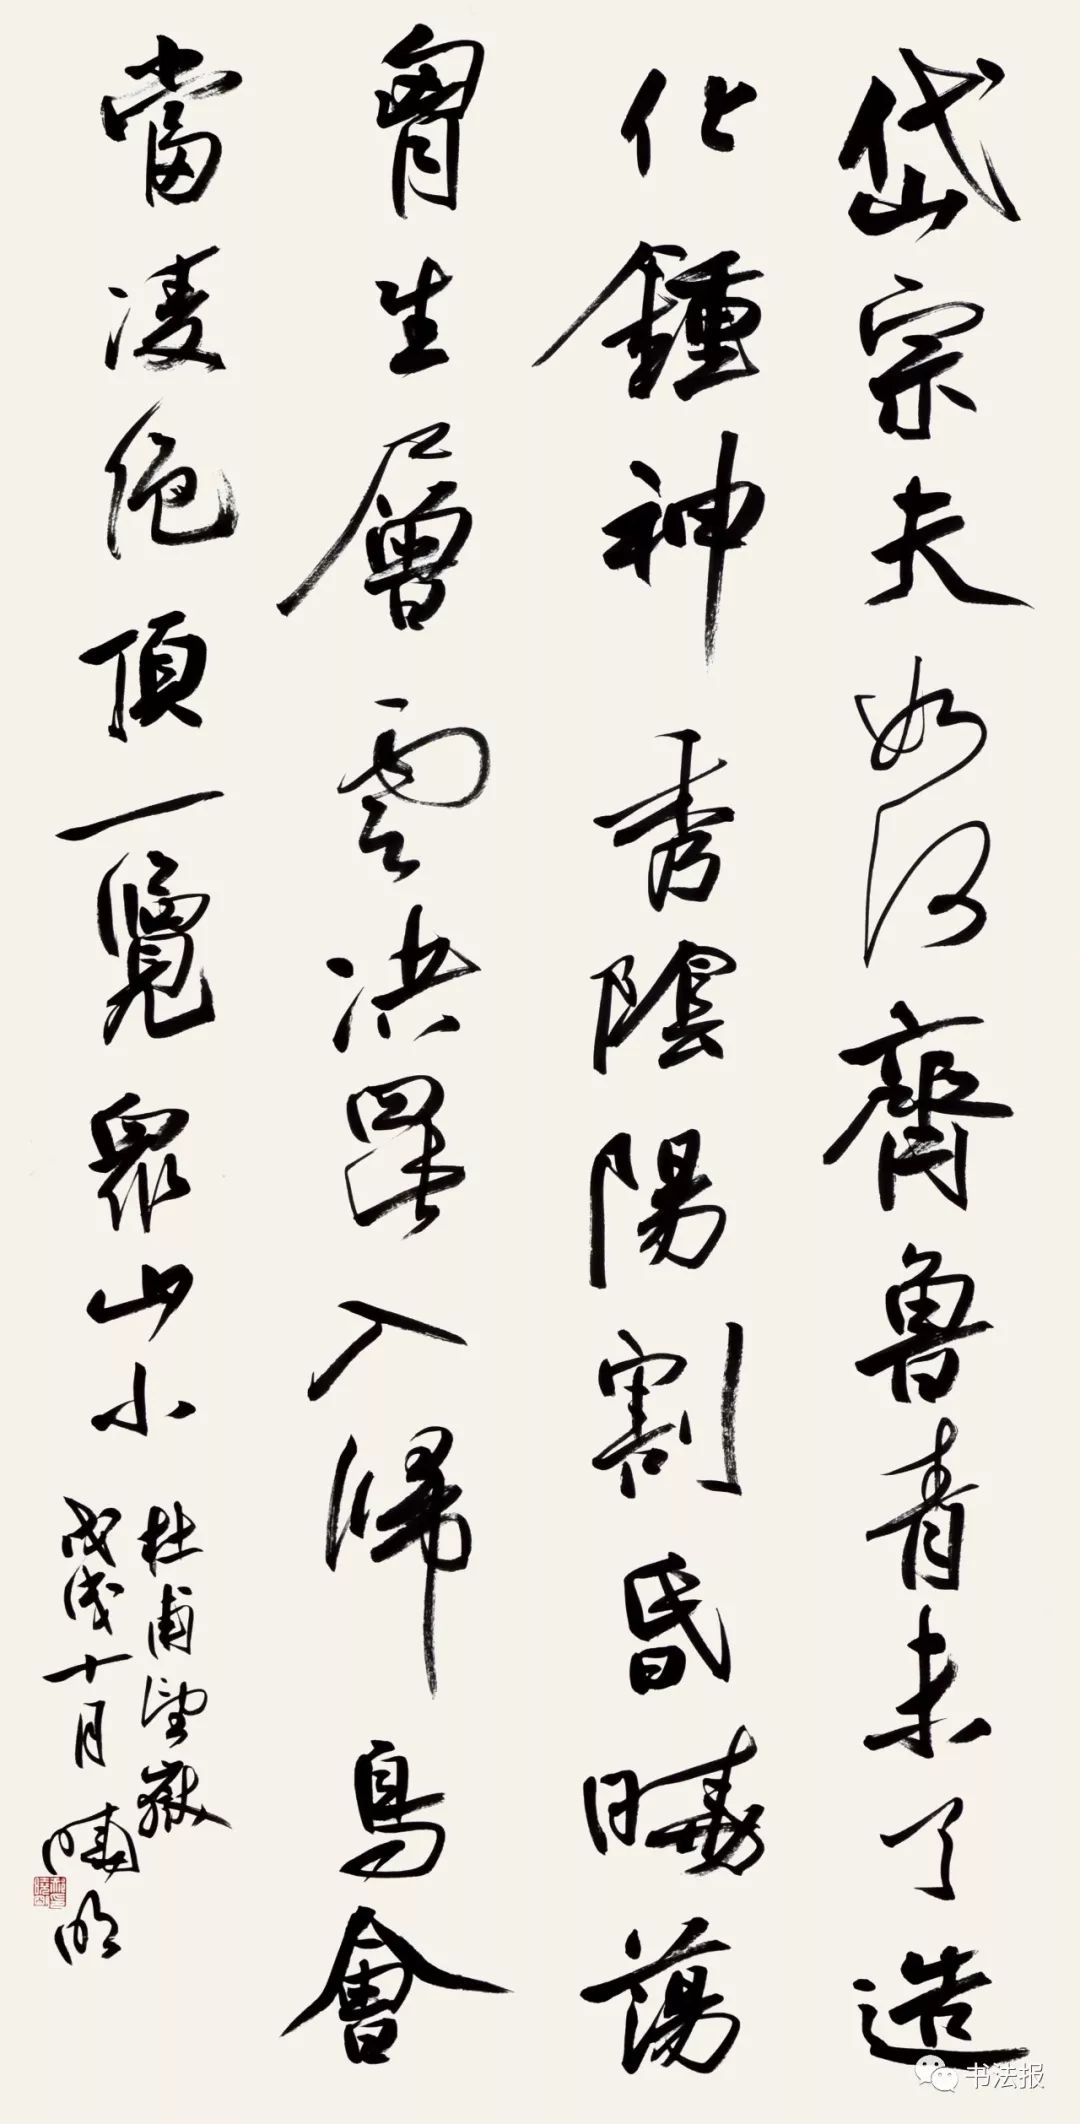 岱宗夫如何齊魯青未了造
化鍾神秀陰陽割昏曉蕩
胷生層雲决眥入歸鳥會
當凌絕頂一覽衆山小
杜甫望嶽
戊戌十月
书法报